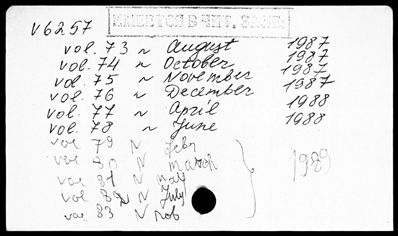 V6257
ИМЕЕТСЯ В ЧИТ. ЗАЛЕ
vol. 73 ~ August 1987
vol. 74 ~ October 1987
vol. 75 ~ November 1987
vol. 76 ~ December 1987
vol. 77 ~ April 1988
vol. 78 ~ June 1988
vol 79 ~ Febr
vol 80 ~ March
vol 81 ~ 1989
vol 82 ~ July
vol 83 ~